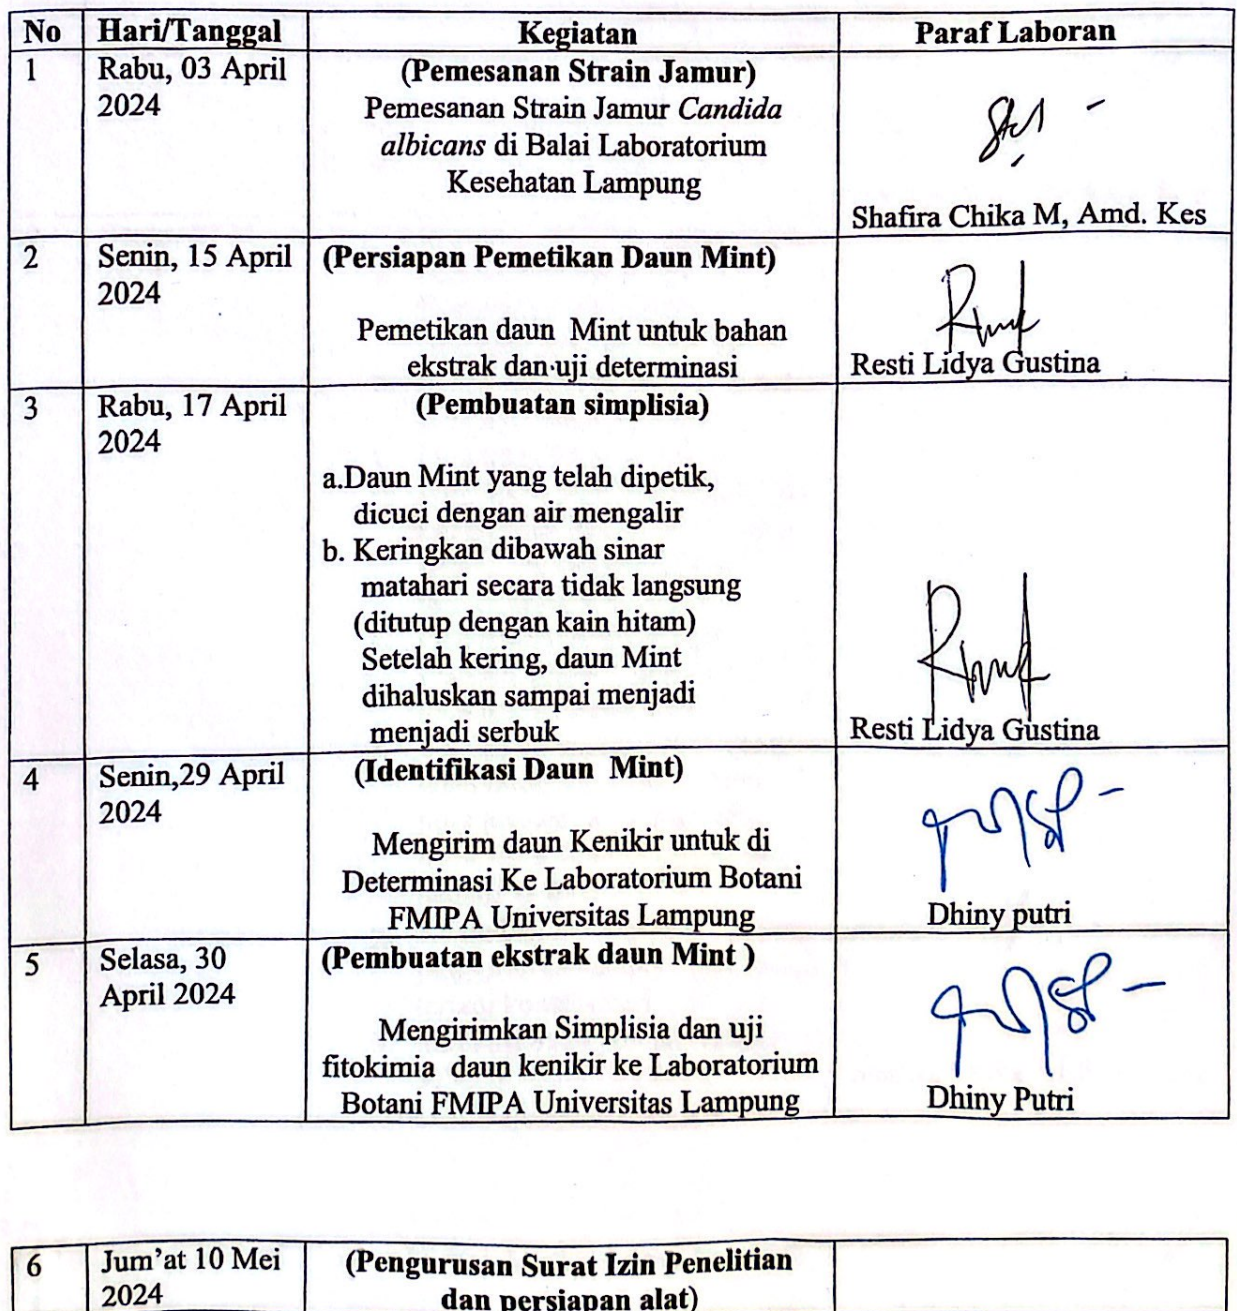 No Hari/Tanggal Kegiatan Paraf Laboran
1 Rabu, 03 April 2024
(Pemesanan Strain Jamur)
Pemesanan Strain Jamur Candida
albicans di Balai Laboratorium
Kesehatan Lampung
Shafira Chika M, Amd. Kes
2 Senin, 15 April 2024
(Persiapan Pemetikan Daun Mint)
Pemetikan daun Mint untuk bahan
ekstrak dan uji determinasi
Resti Lidya Gustina
3 Rabu, 17 April 2024
(Pembuatan simplisia)
a.Daun Mint yang telah dipetik,
dicuci dengan air mengalir
b. Keringkan dibawah sinar
matahari secara tidak langsung
(ditutup dengan kain hitam)
Setelah kering, daun Mint
dihaluskan sampai menjadi
menjadi serbuk
Resti Lidya Gustina
4 Senin,29 April 2024
(Identifikasi Daun Mint)
Mengirim daun Kenikir untuk di
Determinasi Ke Laboratorium Botani
FMIPA Universitas Lampung
Dhiny putri
5 Selasa, 30 April 2024
(Pembuatan ekstrak daun Mint )
Mengirimkan Simplisia dan uji
fitokimia daun kenikir ke Laboratorium
Botani FMIPA Universitas Lampung
Dhiny Putri
6 Jum'at 10 Mei 2024
(Pengurusan Surat Izin Penelitian
dan persiapan alat)